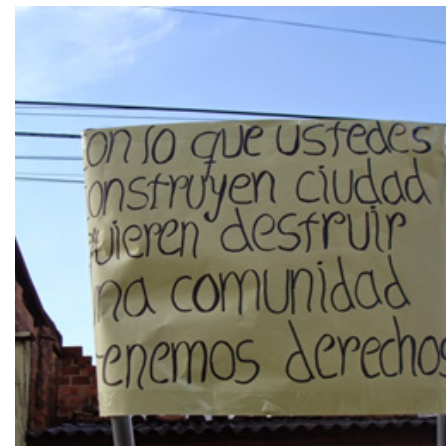 con lo que ustedes
construyen ciudad
quieren destruir
una comunidad
tenemos derechos